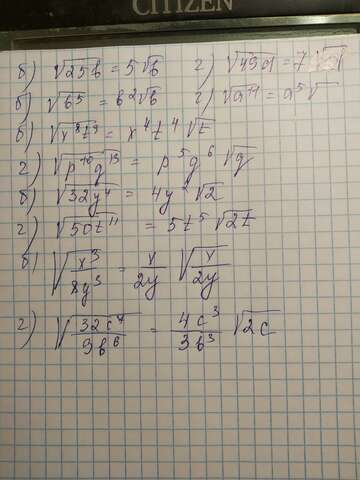 CITIZEN
б) √25b = 5√b г) √49a = 7
б) √b⁵ = b²√b г) √a¹¹ = a⁵√
б) √x⁸t⁹ = x⁴t⁴√t
г) √p¹⁰q¹³ = p⁵q⁶√q
б) √32y⁴ = 4y²√2
г) √50t¹¹ = 5t⁵√2t
б) √(x³/8y³) = x/2y √(x/2y)
г) √(32c⁷/9b⁶) = 4c³/3b³ √2c